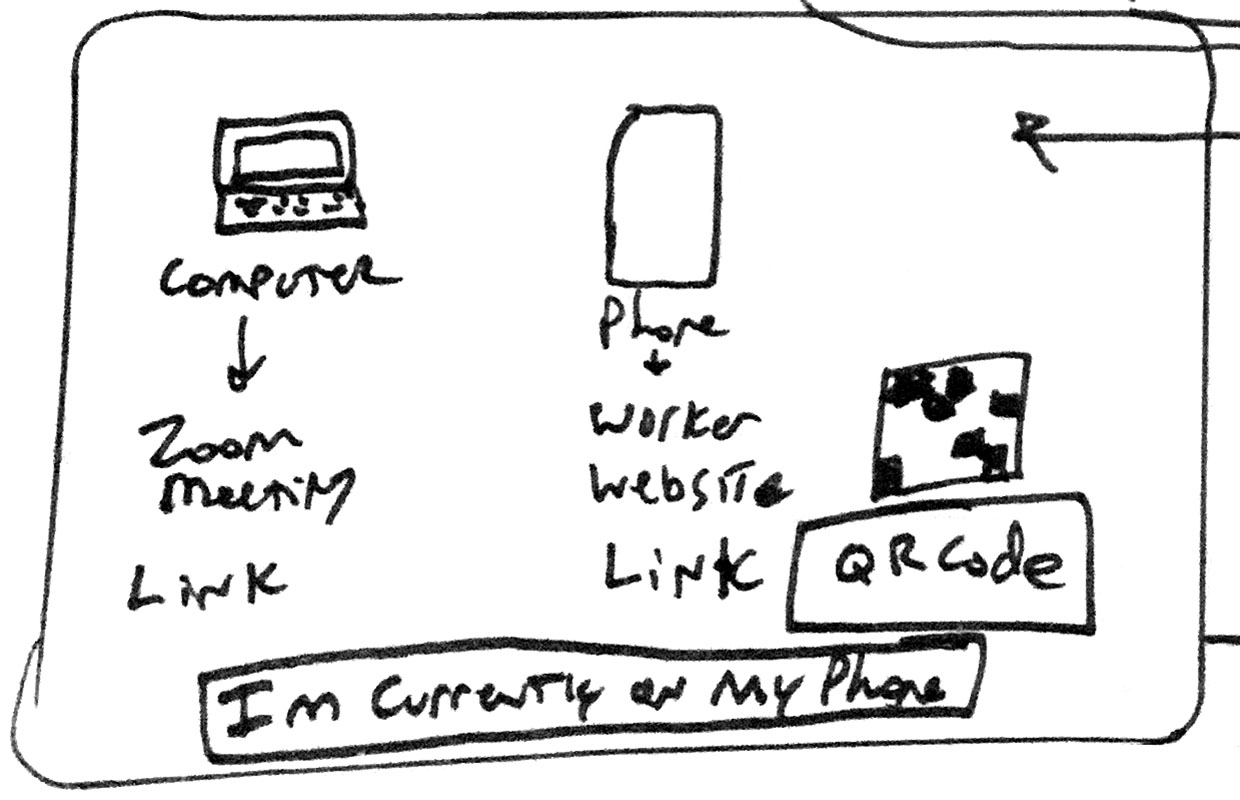 Computer
Zoom
Meeting
Link
Phone
Worker
Website
Link
QR Code
Im Currently on My Phone